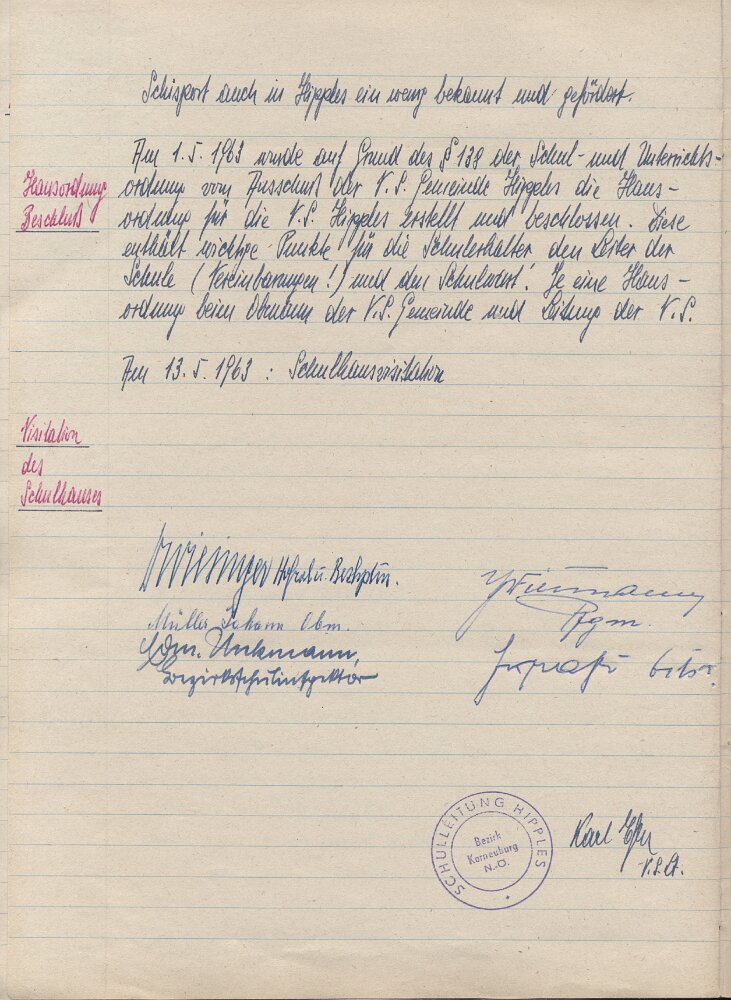 Schisport auch in Hipples ein wenig bekannt und gefördert.
Am 1.5.1963 wurde auf Grund des § 138 der Schul- und Unterrichts-
Hausordnung
ordnung vom Ausschuß der V.S. Gemeinde Hipples die Haus-
Beschluß
ordnung für die V.S. Hipples erstellt und beschlossen. Diese
enthält wichtige Punkte für die Schulerhalter, den Leiter der
Schule (Vereinbarungen!) und den Schulwart! Je eine Haus-
ordnung beim Obmann der V.S. Gemeinde und Leitung der V.S.
Am 13.5.1963 : Schulhausvisitation
Visitation
des
Schulhauses
Müller Johann Obm.
Bgm.
Edm. Unkmann,
Bezirksschulinspektor
SCHULLEITUNG HIPPLES
Bezirk
Korneuburg
N.-Ö.
Karl